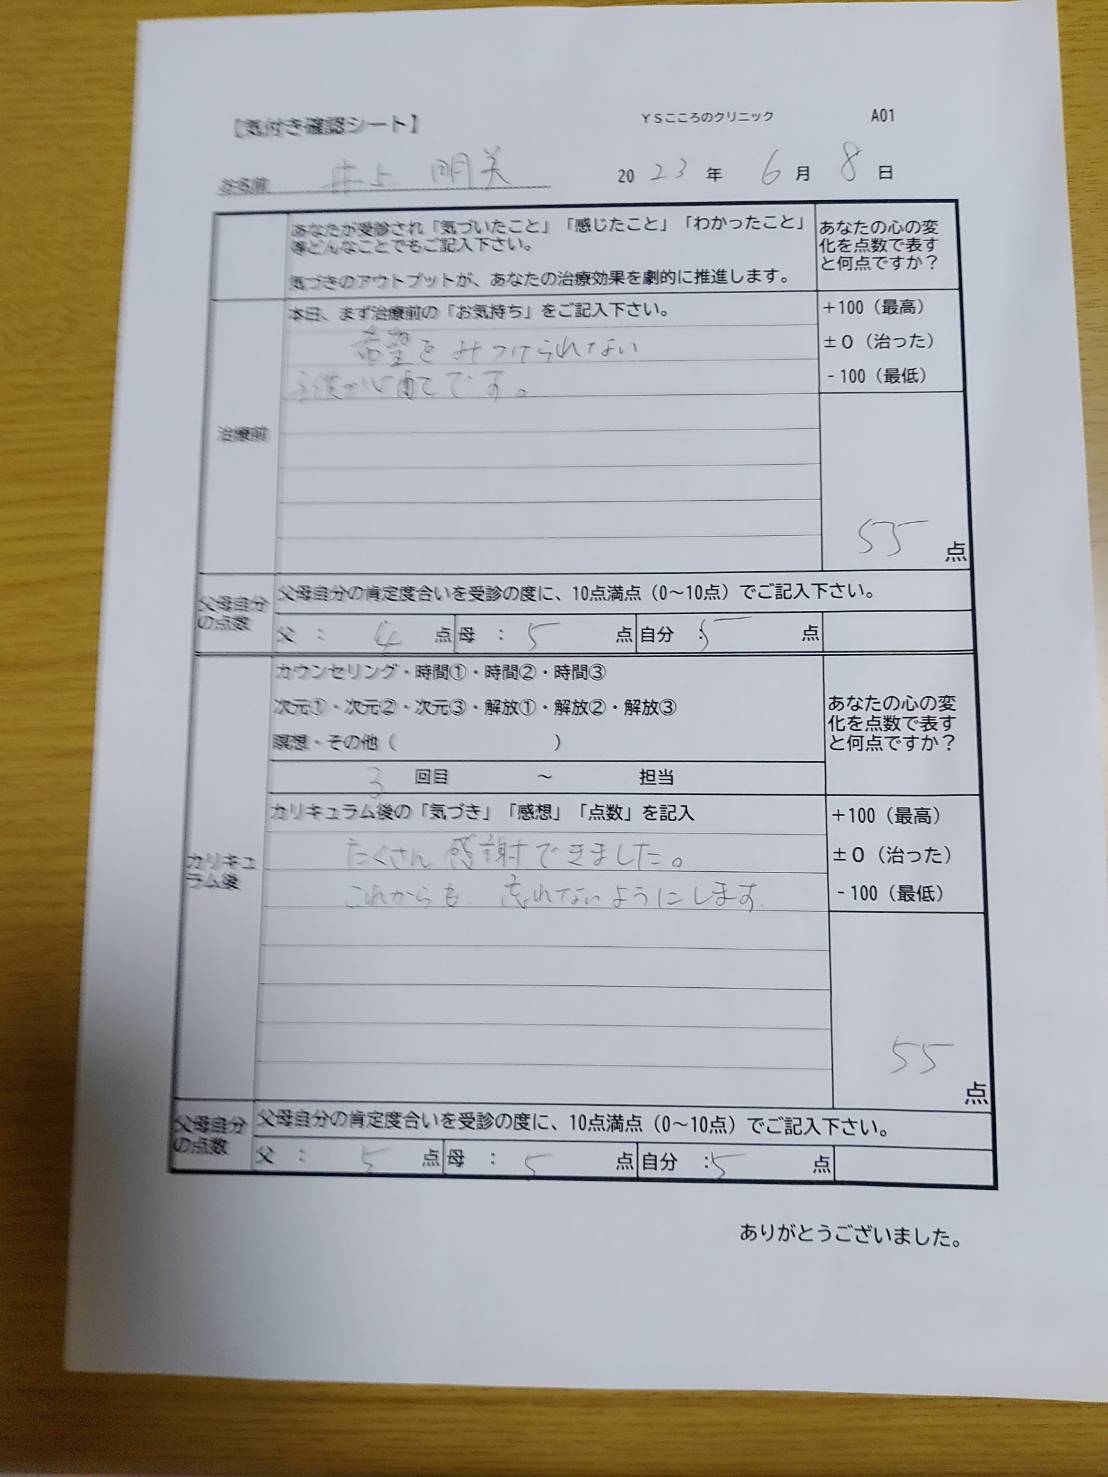 【気付き確認シート】 YSこころのクリニック A01
お名前 井上 明美 2023年 6月 8日
あなたが受診され「気づいたこと」「感じたこと」「わかったこと」
等どんなことでもご記入下さい。
気づきのアウトプットが、あなたの治療効果を劇的に推進します。
あなたの心の変
化を点数で表す
と何点ですか？
治療前
本日、まず治療前の「お気持ち」をご記入下さい。
希望をみつけられない
子供が心配です。
+100（最高）
±0（治った）
-100（最低）
55 点
父母自分
の点数
父母自分の肯定度合いを受診の度に、10点満点（0～10点）でご記入下さい。
父 ： 4 点 母 ： 5 点 自分 ： 5 点
カウンセリング・時間①・時間②・時間③
次元①・次元②・次元③・解放①・解放②・解放③
瞑想・その他（ ）
3 回目 ～ 担当
あなたの心の変
化を点数で表す
と何点ですか？
カリキュ
ラム後
カリキュラム後の「気づき」「感想」「点数」を記入
たくさん感謝できました。
これからも 忘れないようにします
+100（最高）
±0（治った）
-100（最低）
55 点
父母自分
の点数
父母自分の肯定度合いを受診の度に、10点満点（0～10点）でご記入下さい。
父 ： 5 点 母 ： 5 点 自分 ：5 点
ありがとうございました。